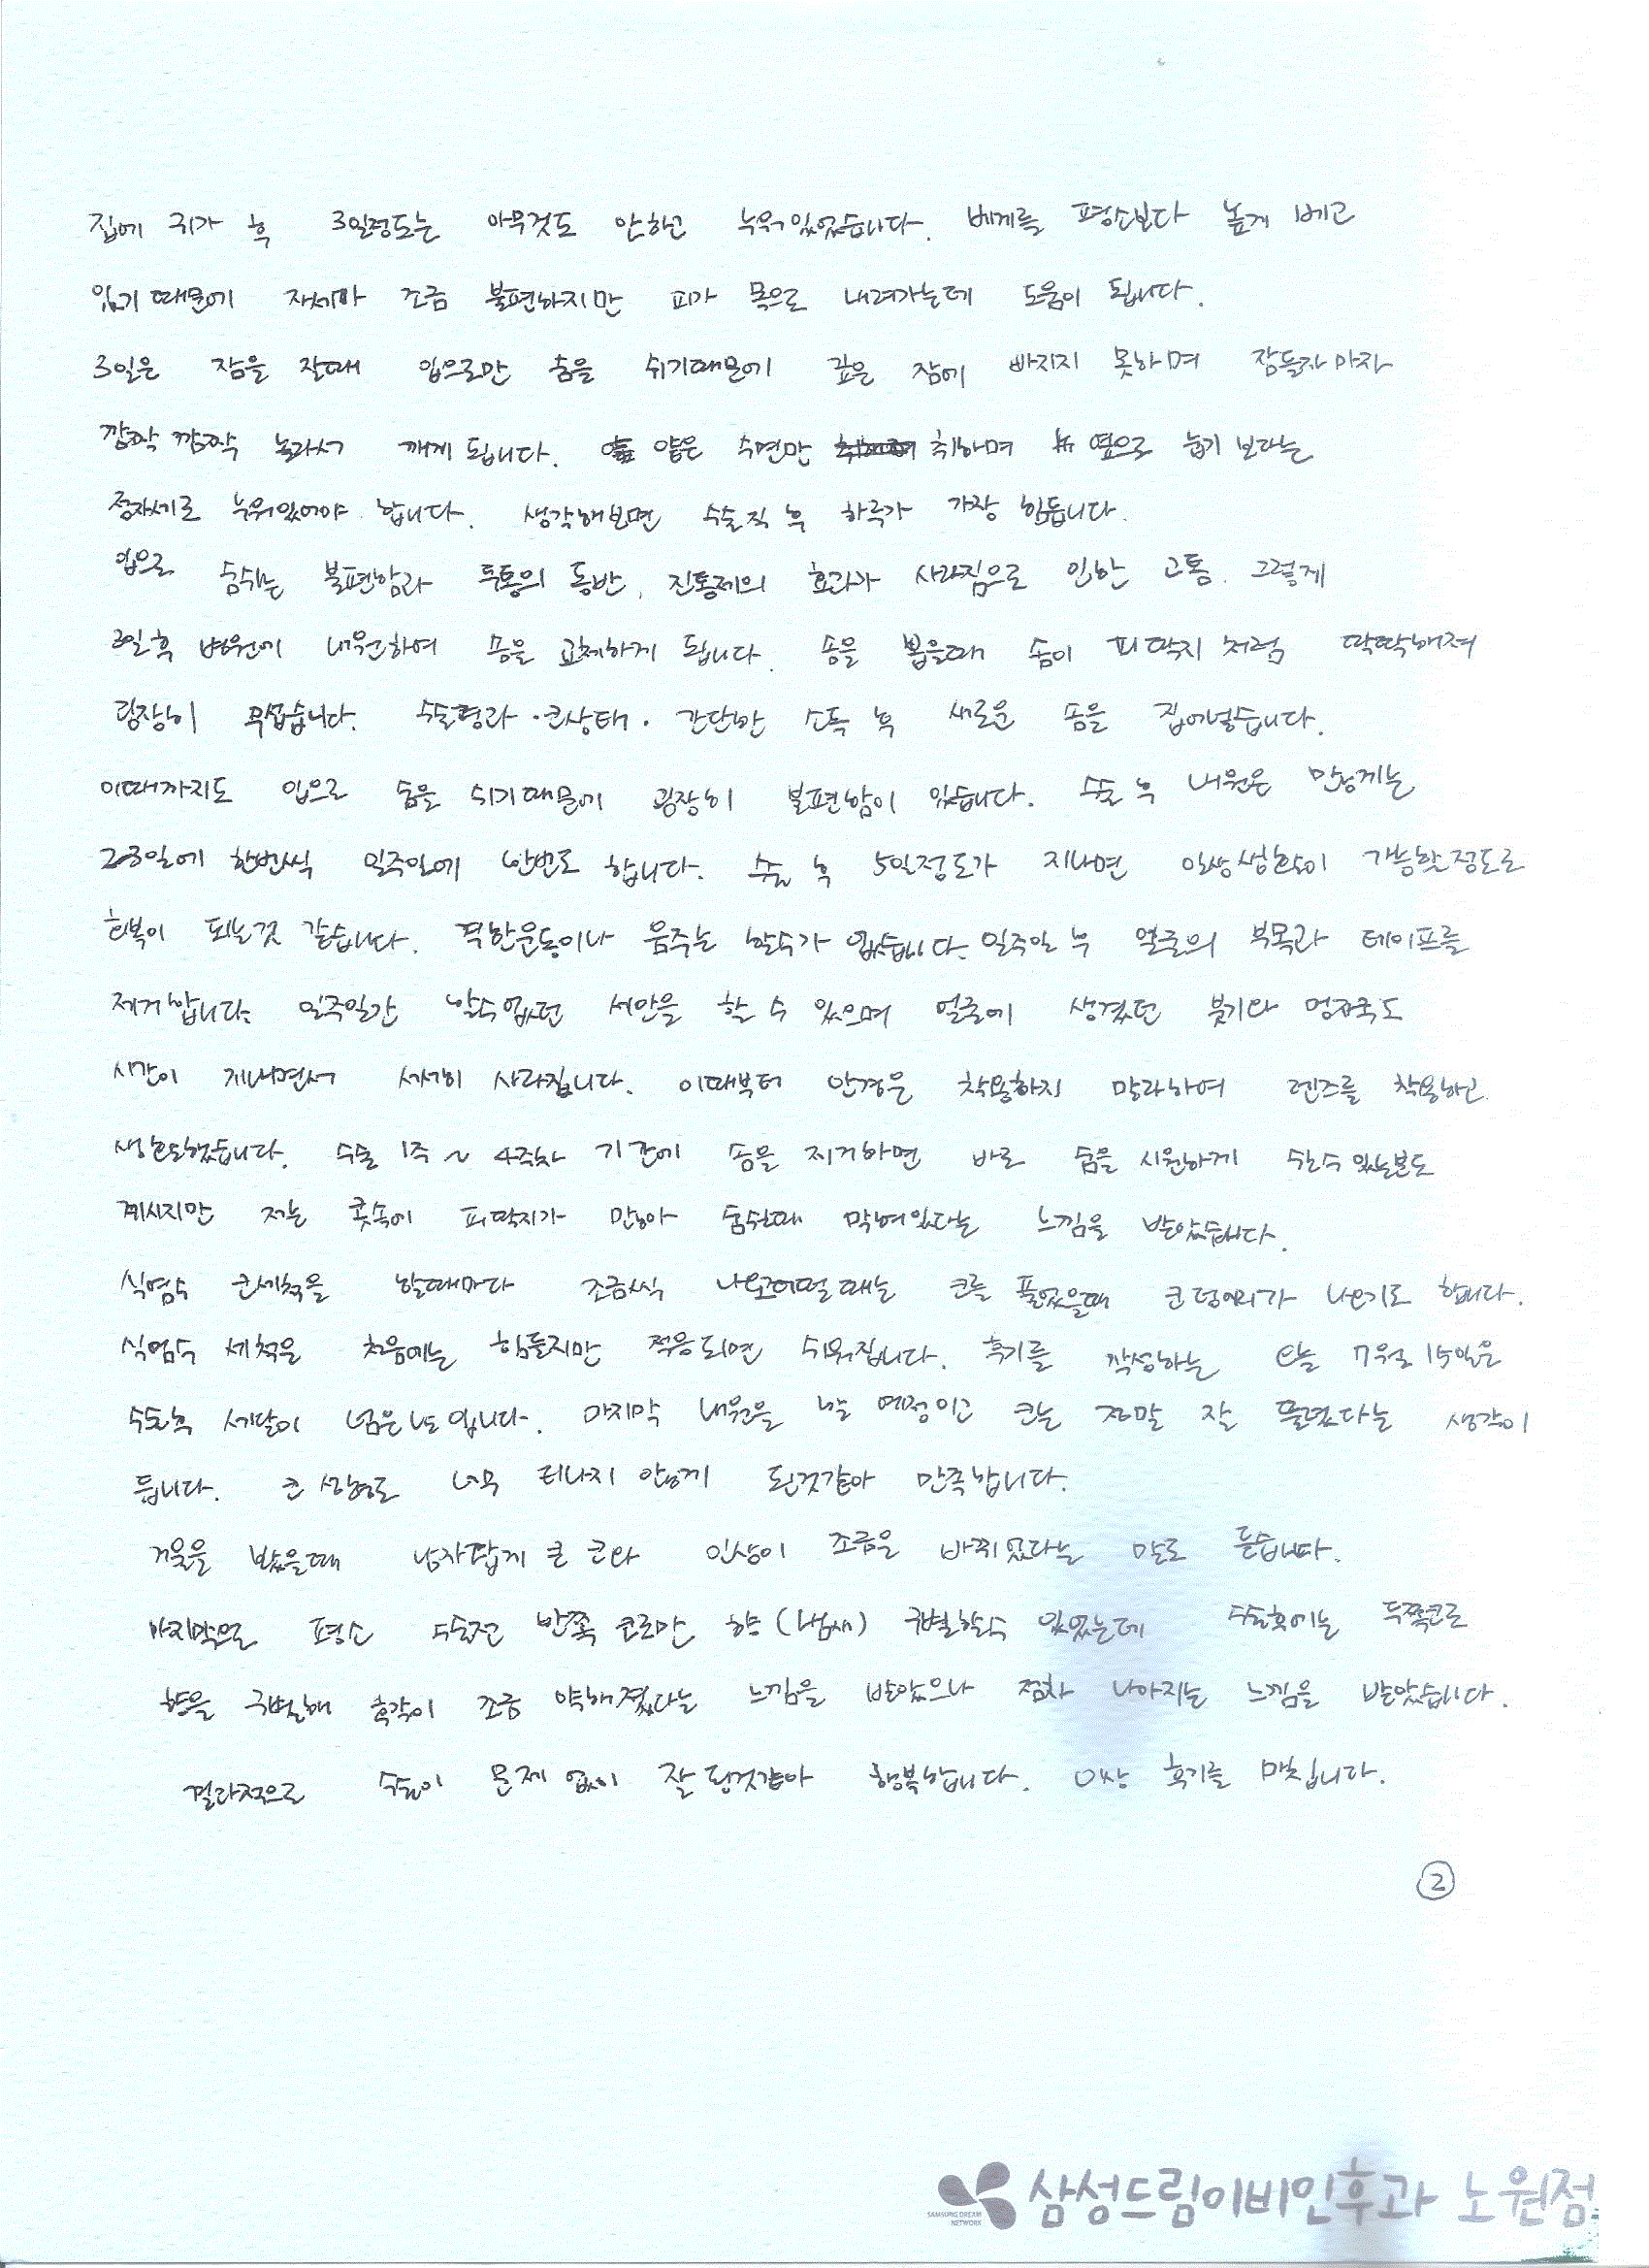 집에 귀가 후 3일정도는 아무것도 안하고 누워있었습니다. 베게를 평소보다 높게 베고
있기 때문에 자세가 조금 불편하지만 피가 목으로 내려가는데 도움이 됩니다.
3일은 잠을 잘때 입으로만 숨을 쉬기때문에 깊은 잠에 빠지지 못하며 잠들자 마자
깜짝 깜짝 놀라서 깨게 됩니다. 얕은 수면만 취하며 옆으로 눕기 보다는
정자세로 누워있어야 합니다. 생각해보면 수술직 후 하루가 가장 힘듭니다.
입으로 숨쉬는 불편함과 두통의 동반, 진통제의 효과가 사라짐으로 인한 고통. 그렇게
3일후 병원에 내원하여 솜을 교체하게 됩니다. 솜을 뽑을때 솜이 피딱지 처럼 딱딱해져
굉장히 무섭습니다. 수술경과·코상태· 간단한 소독 후 새로운 솜을 집어넣습니다.
이때까지도 입으로 숨을 쉬기때문에 굉장히 불편함이 있습니다. 수술 후 내원은 많게는
2~3일에 한번씩 일주일에 한번도 합니다. 수술 후 5일정도가 지나면 일상생활이 가능할정도로
회복이 되는것 같습니다. 격한운동이나 음주는 할수가 없습니다. 일주일 후 얼굴의 부목과 테이프를
제거합니다. 일주일간 할수없던 세안을 할 수 있으며 얼굴에 생겼던 붓기와 멍자국도
시간이 지나면서 서서히 사라집니다. 이때부터 안경은 착용하지 말라하여 렌즈를 착용하고
생활했습니다. 수술 1주 ~ 4주차 기간에 솜을 제거하면 바로 숨을 시원하게 쉴수 있는분도
계시지만 저는 콧속에 피딱지가 많아 숨쉴때 막혀있다는 느낌을 받았습니다.
식염수 코세척을 할때마다 조금씩 나오고어떨때는 코를 풀었을때 큰덩어리가 나오기도 합니다.
식염수 세척은 처음에는 힘들지만 적응되면 쉬워집니다. 후기를 작성하는 오늘 7월 15일은
수술후 세달이 넘은날입니다. 마지막 내원을 남 예정이고 코는 정말 잘 뚫렸다는 생각이
듭니다. 코 성형도 너무 티나지 않게 된것같아 만족합니다.
거울을 봤을때 남자답게 큰 코와 인상이 조금은 바뀌었다는 말도 듣습니다.
마지막으로 평소 수술전 반쪽 코로만 향 (냄새) 구별할수 있었는데 수술후에는 두쪽코로
향을 구별해 후각이 조금 약해졌다는 느낌을 받았으나 점차 나아지는 느낌을 받았습니다.
결과적으로 수술이 문제 없이 잘 된것같아 행복합니다. 이상 후기를 마칩니다.
2
SAMSUNG DREAM NETWORK 삼성드림이비인후과 노원점